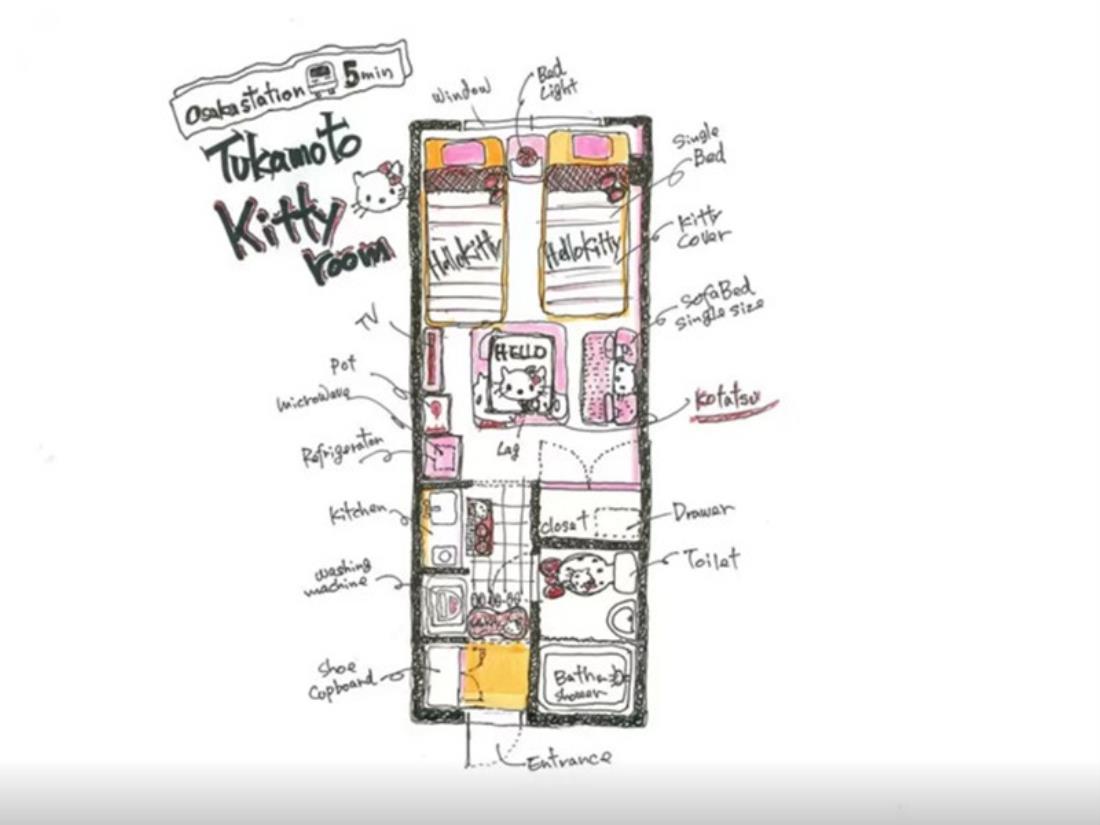 Osaka station 5 min
Tukamoto
Kitty
room
Window
Bed
Light
Single
Bed
Kitty
cover
HelloKitty
HelloKitty
SofaBed
single size
TV
HELLO
Pot
microwave
Kotatsu
Refrigerator
Lag
Kitchen
closet
Drawer
washing
machine
Toilet
Shoe
Cupboard
Bath
shower
Entrance